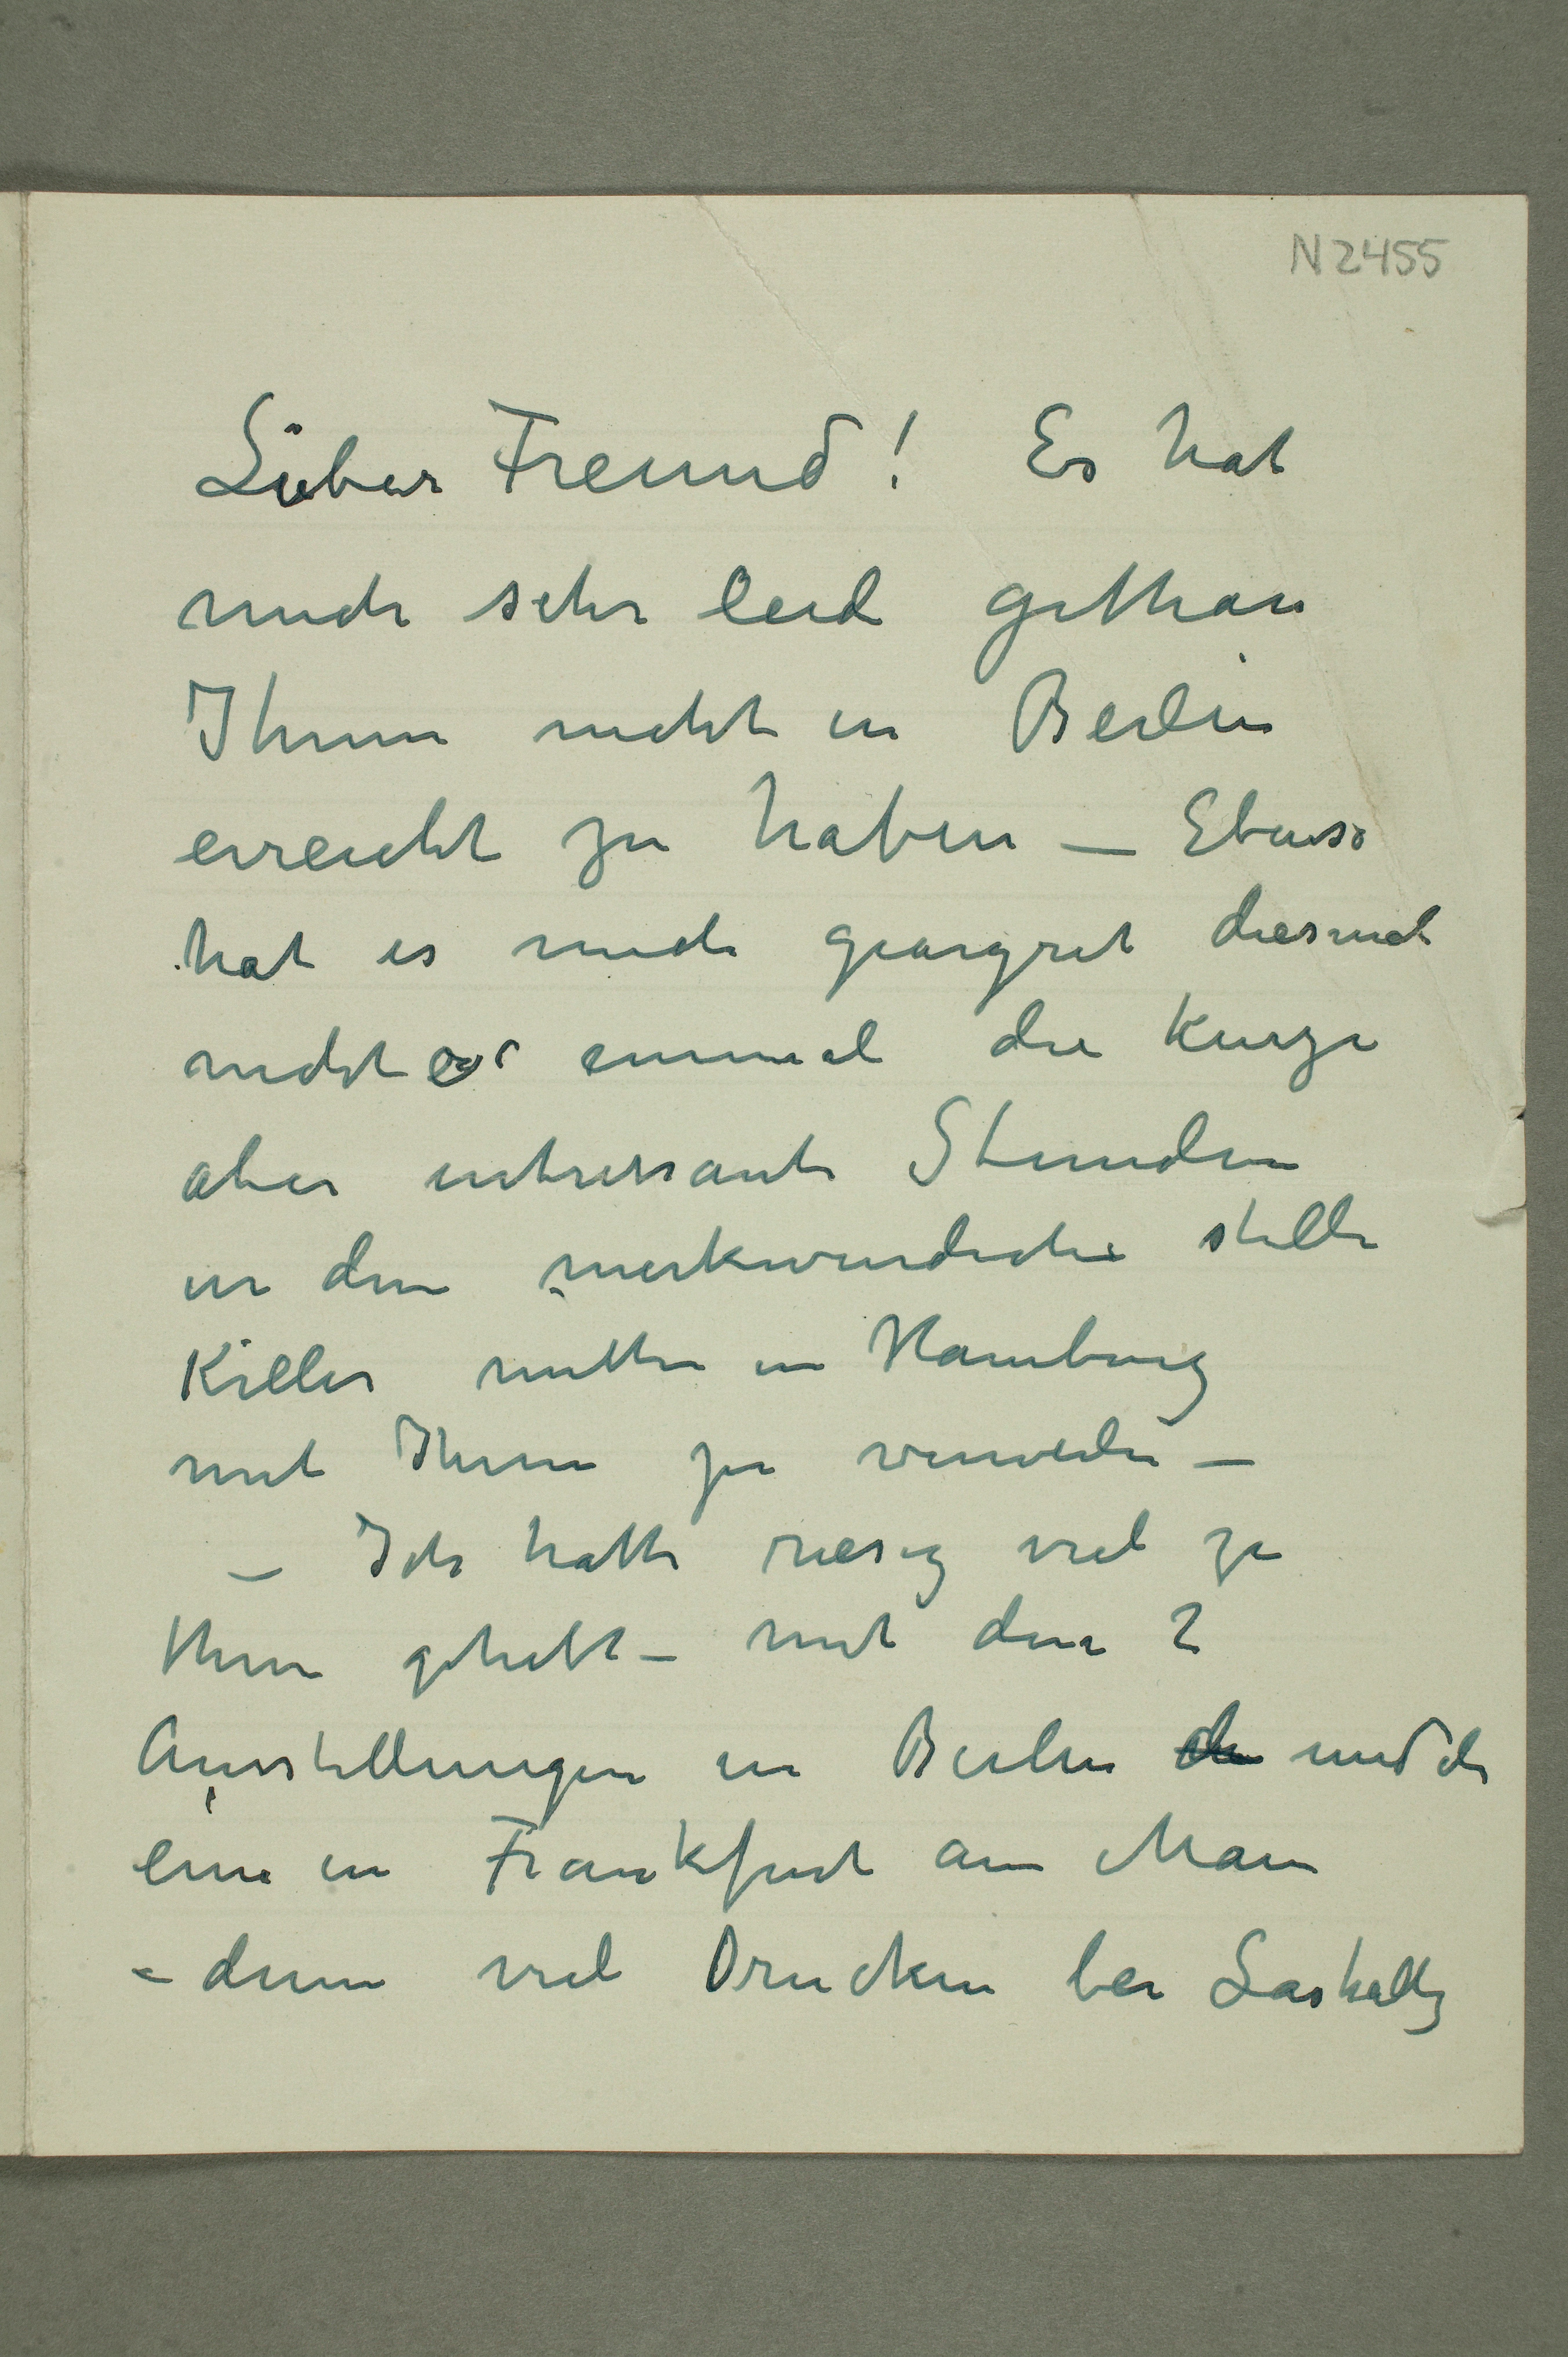 N 2455
Lieber Freund! Es hat
mich sehr leid gethan
Ihnen nicht in Berlin
erreicht zu haben – Ebenso
hat es mich geargret diesmal
nicht einmal die kurze
aber intressante Stunden
in den merkwurdiche stille
Keller mitten in Hamburg
mit Ihnen zu verweilen –
– Ich hatte riesig viel zu
thun gehabt – mit den 2
Ausstellungen in Berlin und die
eine in Frankfurt am Main
– denn viel Drucken bei Laskally